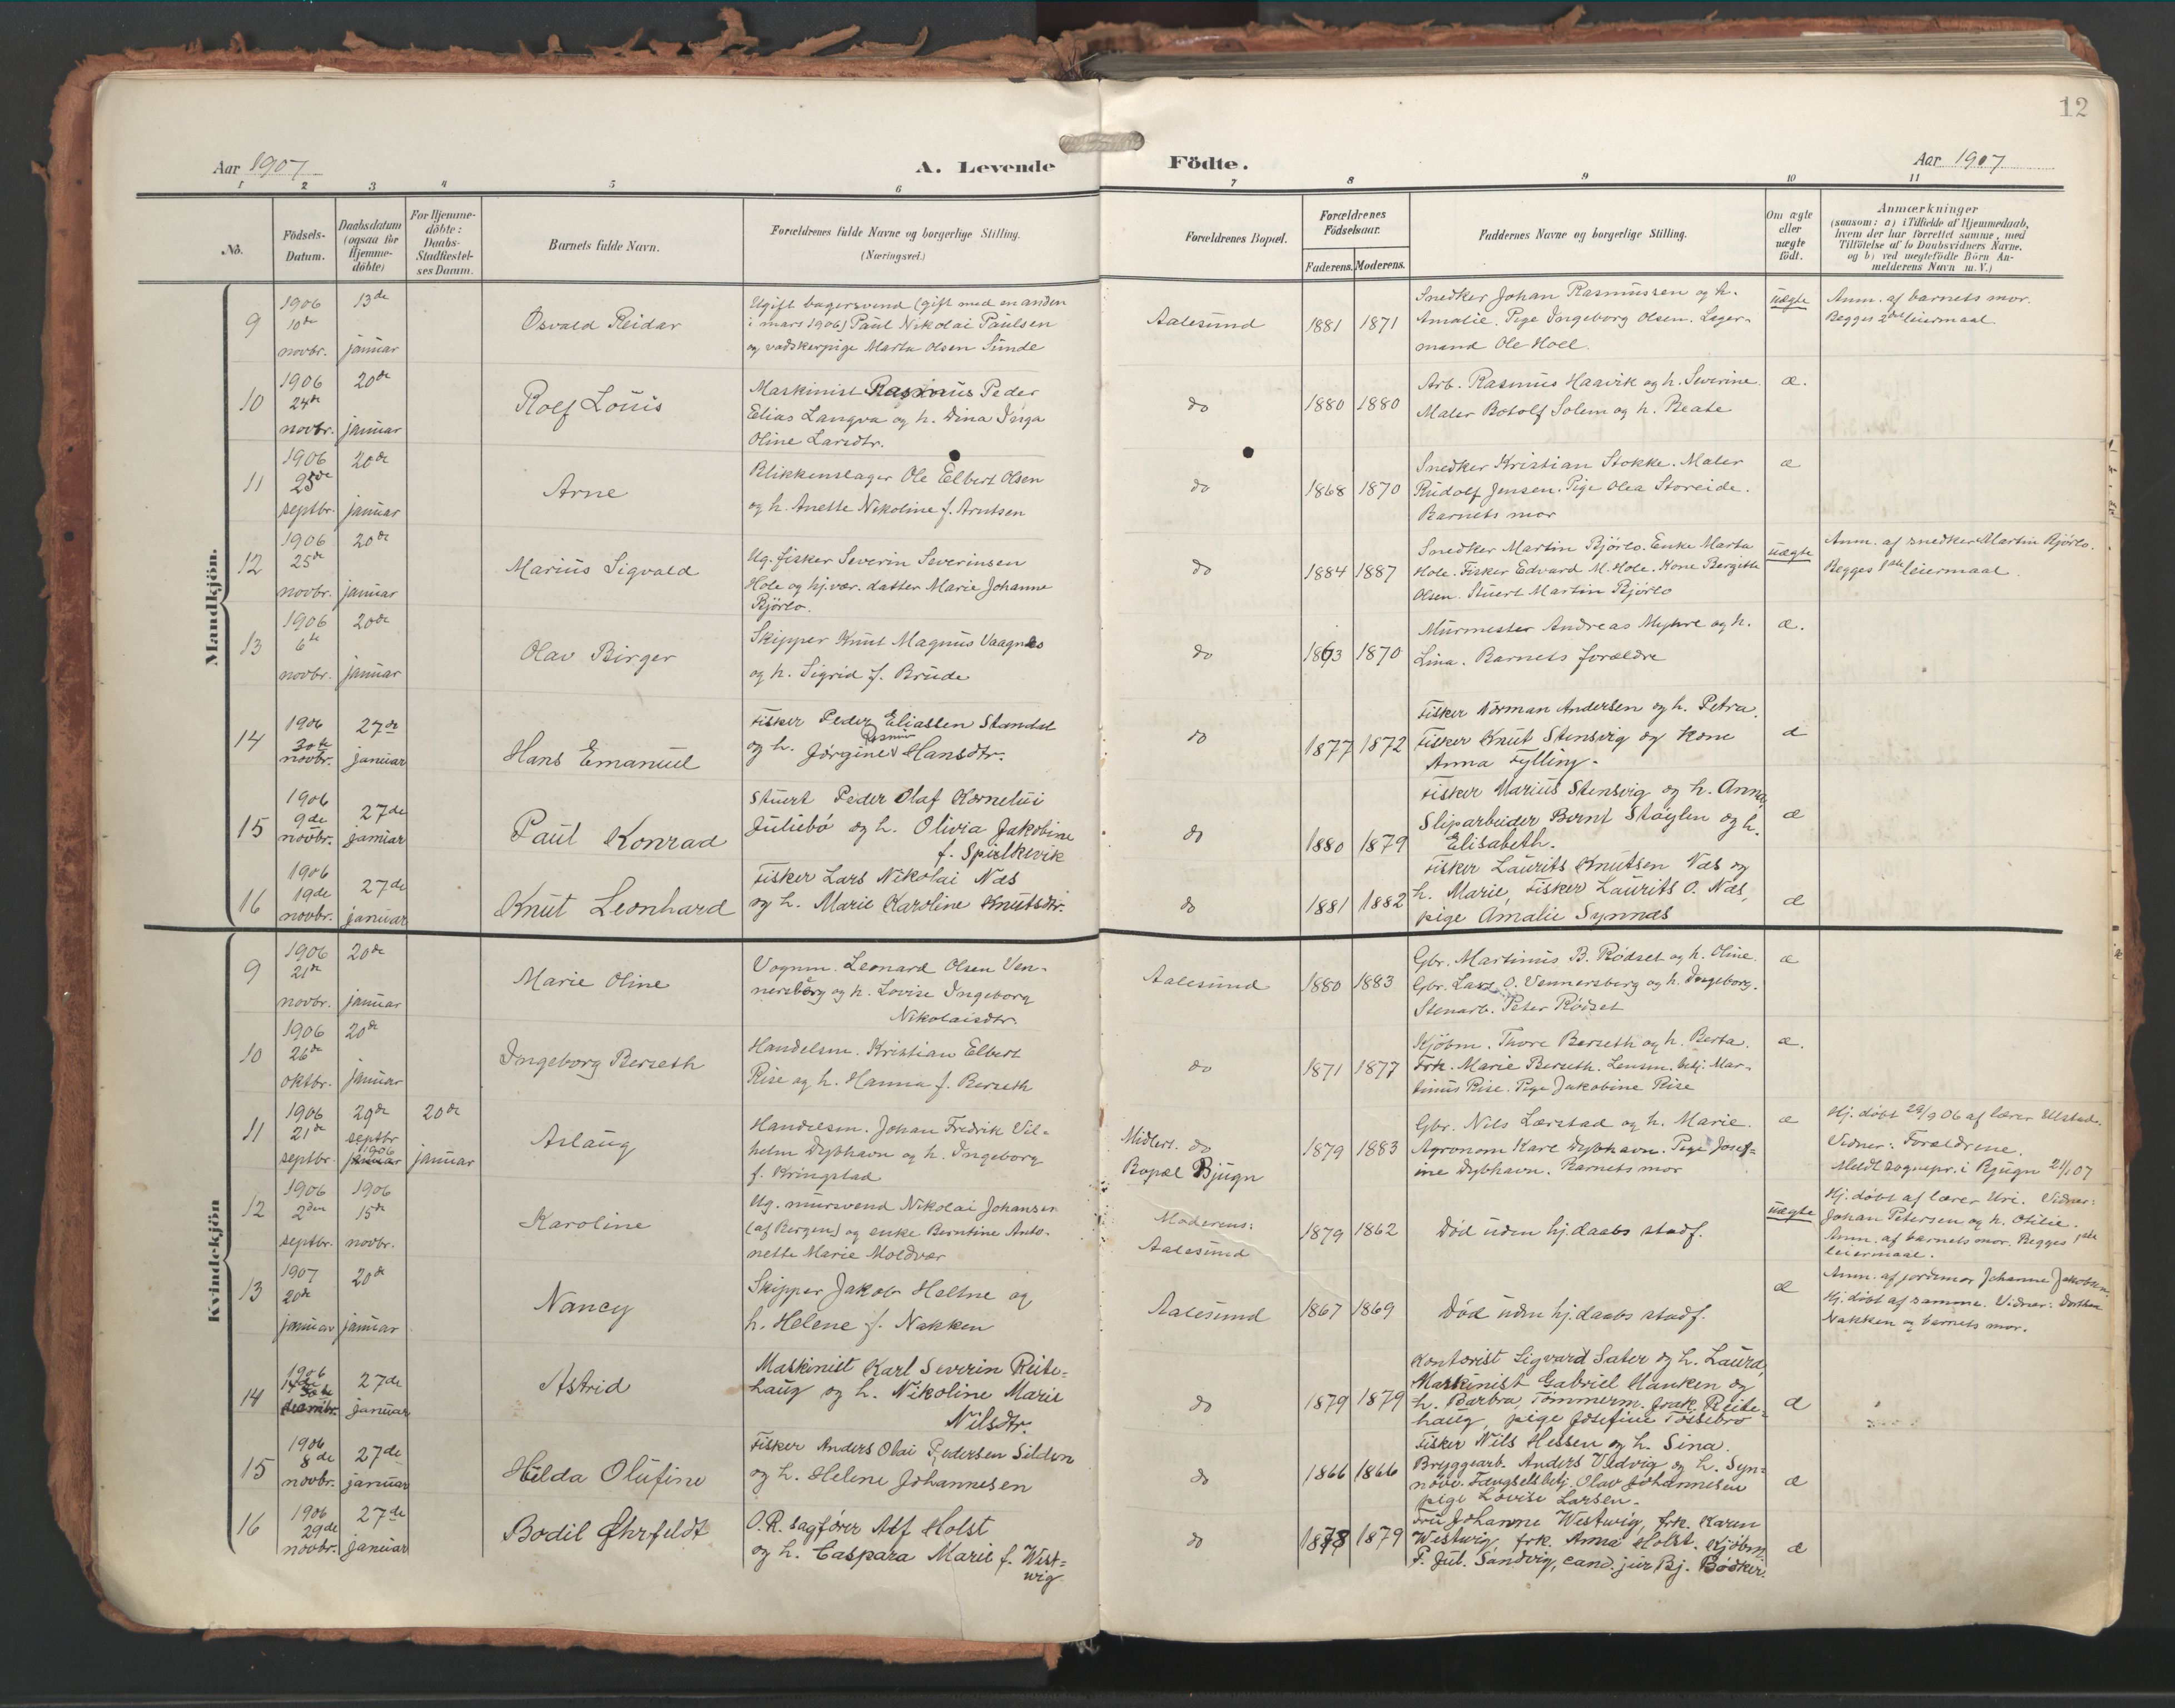 12
Aar 1907
A. Levende
Födte.
Aar 1907
1 2 3 4 5 6 7 8 9 10 11
No.
Födsels-
Datum.
Daabsdatum
(ogsaa for
Hjemme-
döbte)
For Hjemme-
döbte:
Daabs-
Stadfæstel-
ses Datum.
Barnets fulde Navn.
Forældrenes fulde Navne og borgerlige Stilling.
(Næringsvei.)
Forældrenes Bopæl.
Forældrenes
Födselsaar.
Faderens. Moderens.
Faddernes Navne og borgerlige Stilling.
Om ægte
eller
uægte
födt.
Anmærkninger
(saasom: a) i Tilfælde af Hjemmedaab,
hvem der har forrettet samme, med
Tilföielse af to Daabsvidners Navne.
og b) ved uægtefödte Börn An-
melderens Navn m. V.)
Mandkjön.
9
1906
10de
novbr.
13de
januar
Osvald Reidar
Ugift bagersvend (gift med en anden
i mars 1906) Paul Nikolai Paulsen
og vadskerpige Marta Olsen Sunde
Aalesund
1881 1871
Snedker Johan Rasmussen og h.
Amalie. Pige Ingeborg Olsen. Lager-
mand Ole Hoel.
uægte
Anm. af barnets mor.
Begges 2det leiermaal.
10
1906
24de
novbr.
20de
januar
Rolf Louis
Maskinist Rasmus Peder
Elias Langva og h. Dina Inga
Oline Larsdtr.
do
1880 1880
Arb. Rasmus Haavik og h. Severine.
Maler Botolf Solem og h. Beate
æ.
11
1906
25de
septbr.
20de
januar
Arne
Blikkenslager Ole Elbert Olsen
og h. Anette Nikoline f. Arntsen
do
1868 1870
Snedker Kristian Stokke. Maler
Rudolf Jensen. Pige Olea Storeide.
Barnets mor
æ
12
1906
25de
novbr.
20de
januar
Marius Sigvald
Ug. fisker Severin Severinsen
Hole og hj.vær. datter Marie Johanne
Bjørlo.
do
1884 1887
Snedker Martin Bjørlo. Enke Marta
Hole. Fisker Edvard M. Hole. Kone Bergitte
Olsen. Stuert Martin Bjørlo
uægte
Anm. af snedker Martin Bjørlo.
Begges 1ste leiermaal.
13
1906
6te
novbr.
20de
januar
Olav Birger
Skipper Knut Magnus Vaagnes
og h. Sigrid f. Brude
do
1863 1870
Murmester Andreas Myhre og h.
Lina. Barnets forældre
æ.
14
1906
30te
novbr.
27de
januar
Hans Emanuel
Fisker Peder Eliassen Standal
og h. Jørgine Rasmine Hansdtr.
do
1877 1872
Fisker Norman Andersen og h. Petra.
Fisker Knut Stensvig og kone
Anna Fylling.
æ
15
1906
9de
novbr.
27de
januar
Paul Konrad
Stuert Peder Olaf Kornelius
Juliebø og h. Olivia Jakobine
f. Spjelkevik
do
1880 1879
Fisker Marius Stensvig og h. Anna,
Sliparbeider Bernt Støylen og h.
Elisabeth.
æ
16
1906
19de
novbr.
27de
januar
Knut Leonhard
Fisker Lars Nikolai Næs
og h. Marie Karoline Knutsdtr.
do
1881 1882
Fisker Laurits Knutsen Næs og
h. Marie, Fisker Laurits O. Næs,
pige Amalie Synnæs
æ
Kvindekjön
9
1906
21de
novbr.
20de
januar
Marie Oline
Vognm. Leonard Olsen Ven-
nersberg og h. Lovise Ingeborg
Nikolaisdtr.
Aalesund
1880 1883
Gbr. Martinus B. Rødset og h. Oline.
Gbr. Lars O. Vennersberg og h. Ingeborg.
Stenarb. Peter Rødset
æ
10
1906
26de
oktbr.
20de
januar
Ingeborg Berseth
Handelsm. Kristian Elbert
Rise og h. Hanna f. Berseth
do
1871 1877
Kjöbm. Thore Berseth og h. Berta.
Frk. Marie Berseth. Lensm. betj. Mar-
tinus Rise. Pige Jakobine Rise
æ.
11
1906
21de
septbr.
29de
septbr
1906
januar
20de
januar
Aslaug
Handelsm. Johan Fredrik Vil-
helm Dybhavn og h. Ingeborg
f. Kringstad
Midlert. do
Bopæl Bjugn
1879 1883
Gbr. Nils Lærstad og h. Marie.
Agronom Karl Dybhavn. Pige Josef-
ine Dybhavn. Barnets mor
æ
Hj. døbt 29/9 06 af lærer Ulstad.
Vidner: Forældrene.
Meldt sognepr. i Bjugn 21/1 07
12
1906
2den
septbr.
1906
15de
novbr.
Karoline
Ug. mursvend Nikolai Johansen
(af Bergen) og enke Berntine Anto-
nette Marie Moldvær
Moderens:
Aalesund
1879 1862
Død uden hj.daabs stadf.
uægte
Hj. døbt af lærer Uri. Vidner:
Johan Petersen og h. Otilie.
Anm. af barnets mor. Begges 1ste
leiermaal.
13
1907
20de
januar
20de
januar
Nancy
Skipper Jakob Heltne og
h. Helene f. Nakken
Aalesund
1867 1869
Død uden hj.daabs stadf.
æ
Anm. af jordemor Johanne Jakobsen.
Hj. døbt af samme. Vidner: Dorthea
Nakken og barnets mor.
14
1906
14de
decembr.
27de
januar
Astrid
Maskinist Karl Severin Reite-
haug og h. Nikoline Marie
Nilsdtr.
do
1879 1879
Kontorist Sigvard Sæter og h. Laura,
Maskinist Gabriel Hanken og
h. Barbra, Tømmerm. Isak Reite-
haug, pige Josefine Tossebro
æ
15
1906
8de
novbr.
27de
januar
Hilda Olufine
Fisker Anders Olai Pedersen Silden
og h. Helene Johannesen
do
1866 1866
Fisker Nils Hessen og h. Sina.
Bryggearb. Anders Vedvig og h. Syn-
nøve. Fængselsbetj. Olav Johannesen
pige Lovise Larsen.
æ
16
1906
29de
novbr.
27de
januar
Bodil Ohrfeldt
O.R. sagfører Alf Holst
og h. Caspara Marie f. West-
wig
do
1878 1879
Fru Johanne Westwig, frk. Karen
Westwig, frk. Anna Holst. Kjöbm.
P. Jul. Sandvig, cand. jur Bj. Bødker.
æ